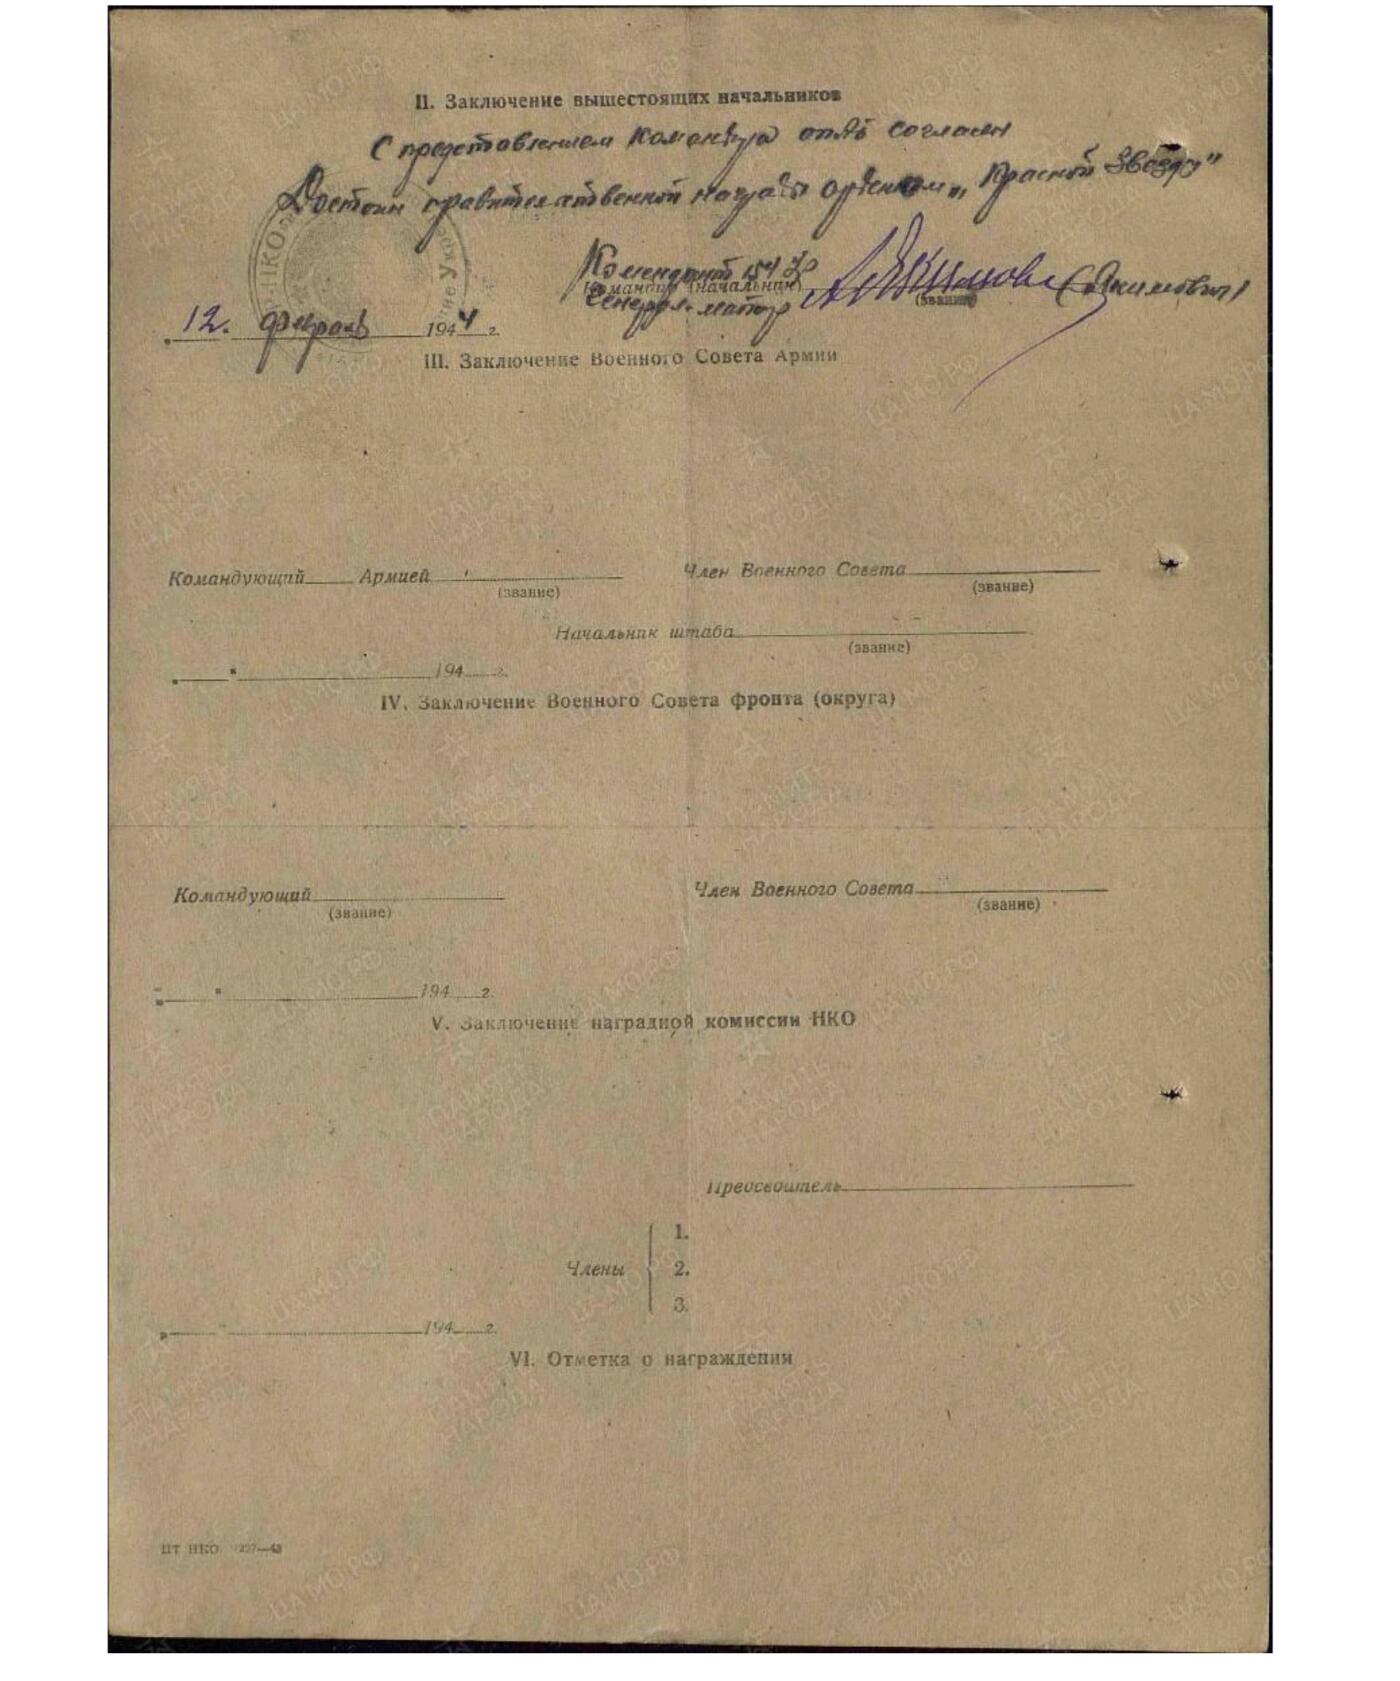 II. Заключение вышестоящих начальников
С представлением Командира опаб согласен
Достоин правительственной награды орденом „Красной Звезды"
Комендант 154 УР
Командир (начальник)
Генерал-майор (Якимович)
(звание)
12. февраль 1944 г.
III. Заключение Военного Совета Армии
Командующий Армией
Член Военного Совета
(звание)
(звание)
Начальник штаба
(звание)
„ " 194 г.
IV. Заключение Военного Совета фронта (округа)
Командующий
Член Военного Совета
(звание)
(звание)
„ " 194 г.
V. Заключение наградной комиссии НКО
Председатель
1.
Члены 2.
3.
„ " 194 г.
VI. Отметка о награждении
ЦАМО.РФ
ПАМЯТЬ
НАРОДА